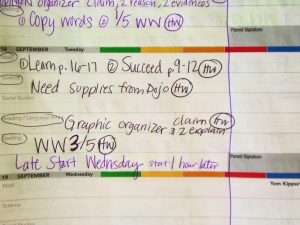 organizer claim, 2 reason, 2 evidences
① Copy words @ 1/5 WW HW
Parent Signature
18 SEPTEMBER Tuesday
① Learn p.16-17 ② Succeed p.9-12 HW
Science
Need supplies from Dojo HW
Social Studies
Reading / Language
Graphic organizer claim & 2 explain HW
Spelling
WW 3/5 HW
Late Start Wednesday start 1 hour later
Parent Signature
19 SEPTEMBER Wednesday
Math
Yom Kippur
Science